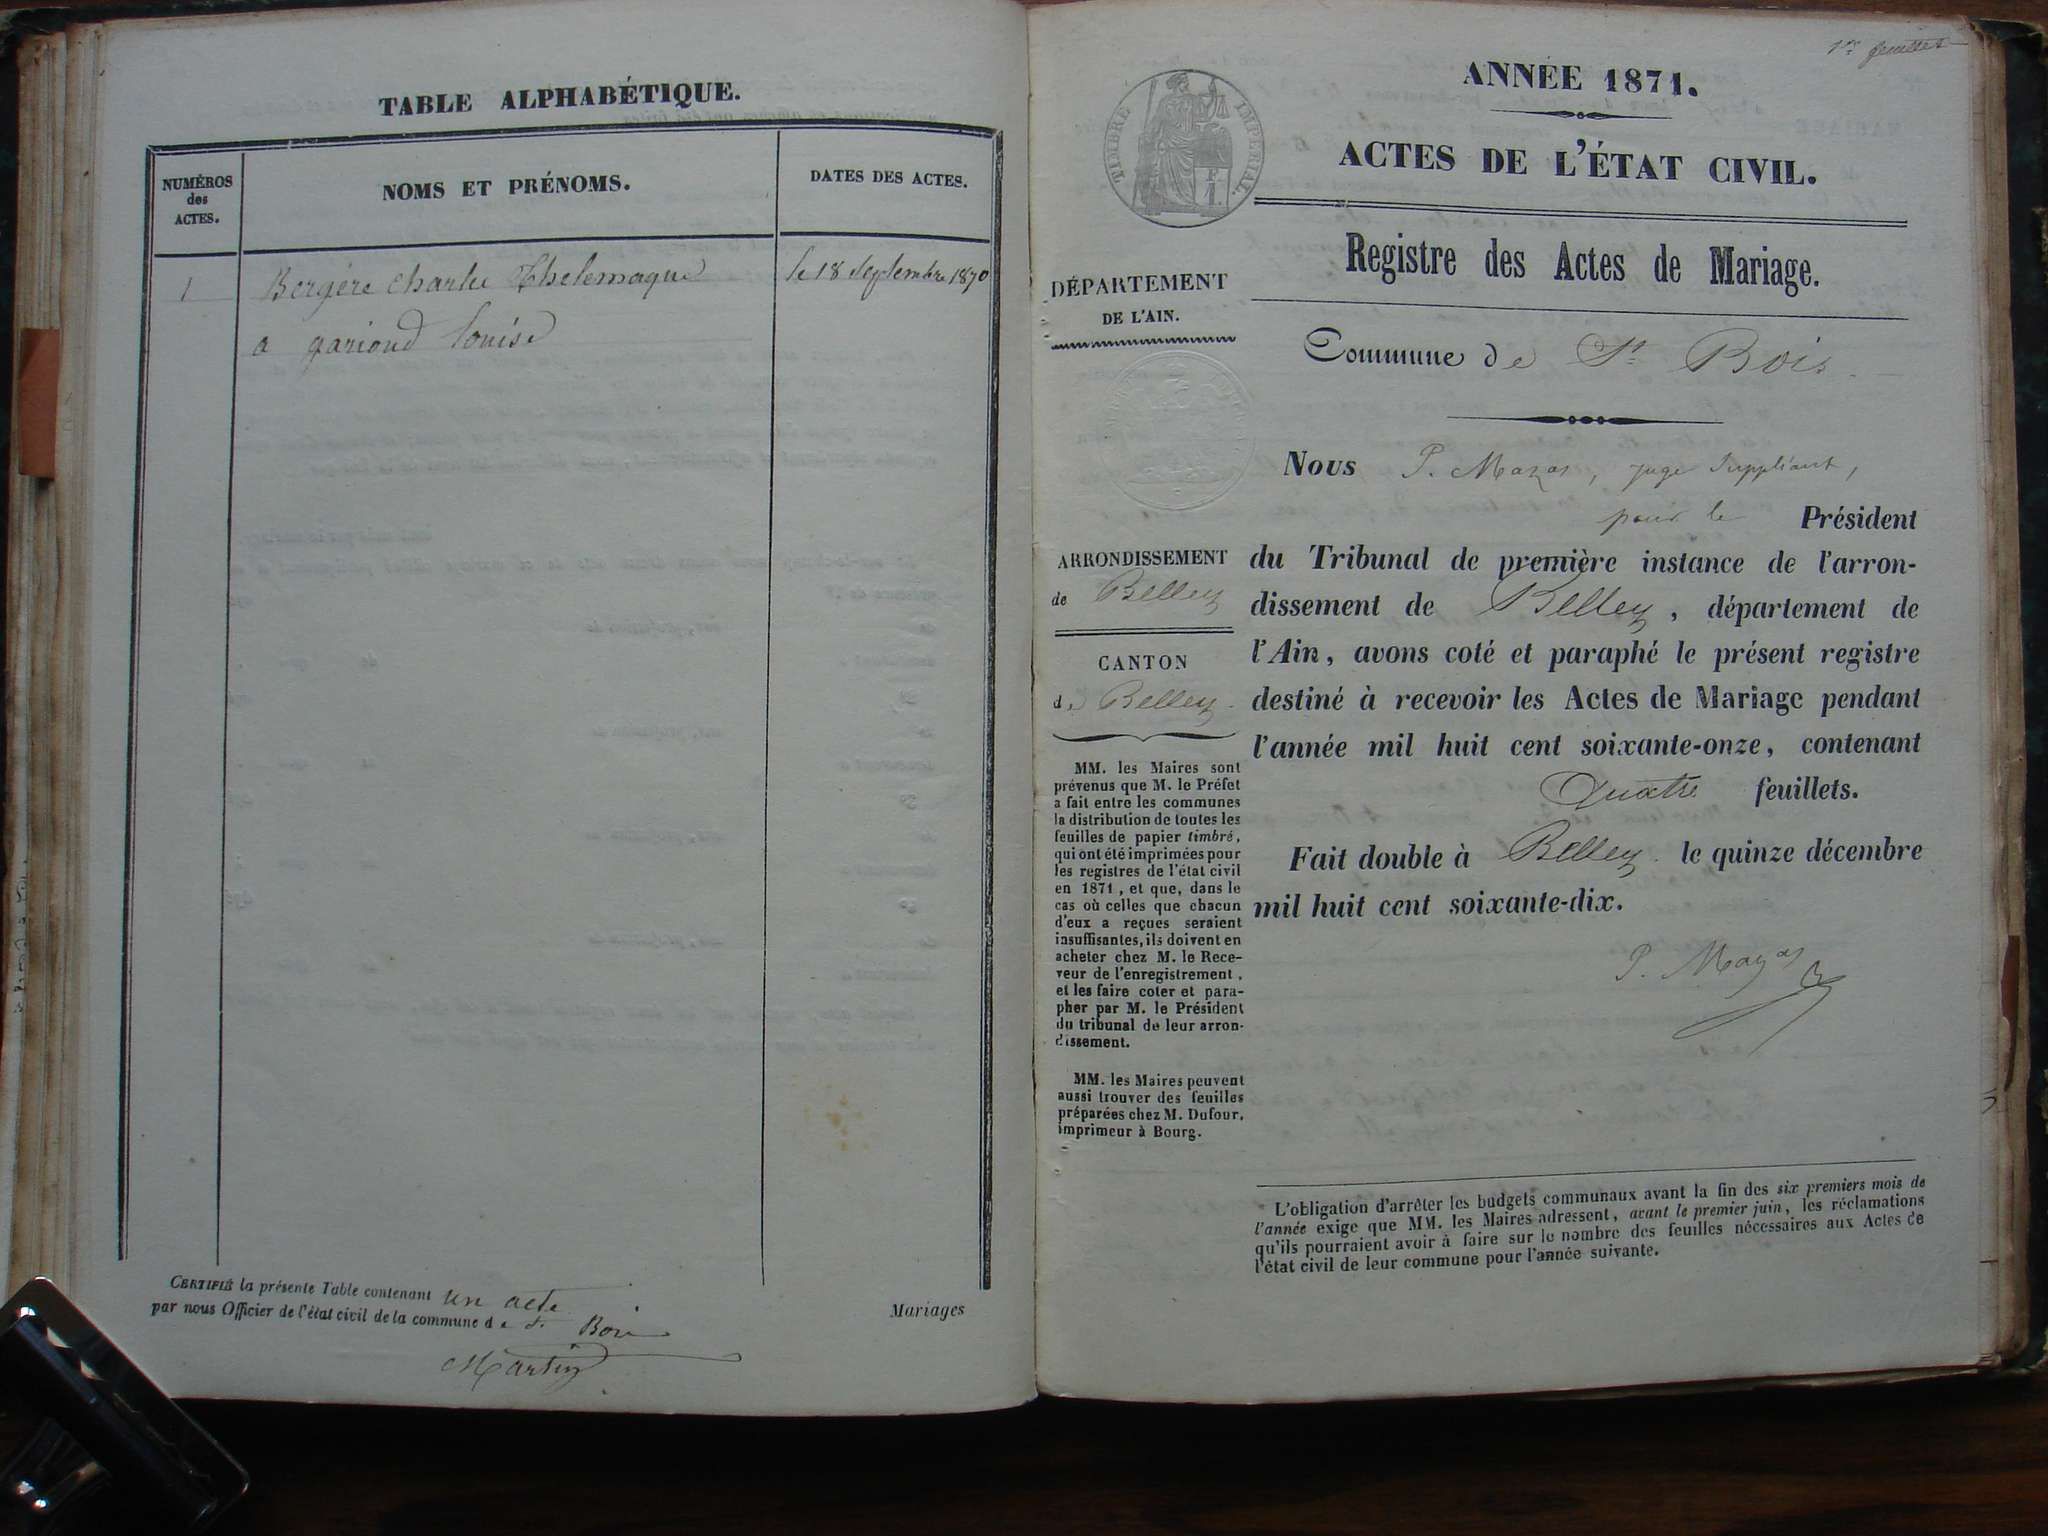 TABLE ALPHABÉTIQUE.
NUMÉROS
des
ACTES.
NOMS ET PRÉNOMS.
DATES DES ACTES.
1 Bergére Charles Thelemaque le 18 Septembre 1870
a gariond Louise
CERTIFIÉ la présente Table contenant un acte
par nous Officier de l'état civil de la commune de St Bois
Martin
Mariages
1er feuillet
ANNÉE 1871.
ACTES DE L'ÉTAT CIVIL.
TIMBRE IMPÉRIAL.
Registre des Actes de Mariage.
DÉPARTEMENT
DE L'AIN.
Commune de St Bois
Nous P. Mazas, juge Suppléant,
pour le Président
ARRONDISSEMENT
de Belley
CANTON
de Belley
du Tribunal de première instance de l'arron-
dissement de Belley, département de
l'Ain, avons coté et paraphé le présent registre
destiné à recevoir les Actes de Mariage pendant
l'année mil huit cent soixante-onze, contenant
Quatre feuillets.
Fait double à Belley le quinze décembre
mil huit cent soixante-dix.
P. Mazas
MM. les Maires sont
prévenus que M. le Préfet
a fait entre les communes
la distribution de toutes les
feuilles de papier timbré,
qui ont été imprimées pour
les registres de l'état civil
en 1871, et que, dans le
cas où celles que chacun
d'eux a reçues seraient
insuffisantes, ils doivent en
acheter chez M. le Rece-
veur de l'enregistrement,
et les faire coter et para-
pher par M. le Président
du tribunal de leur arron-
dissement.
MM. les Maires peuvent
aussi trouver des feuilles
préparées chez M. Dufour,
imprimeur à Bourg.
L'obligation d'arrêter les budgets communaux avant la fin des six premiers mois de
l'année exige que MM. les Maires adressent, avant le premier juin, les réclamations
qu'ils pourraient avoir à faire sur le nombre des feuilles nécessaires aux Actes de
l'état civil de leur commune pour l'année suivante.